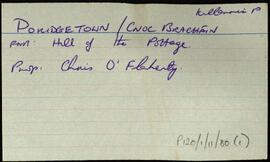 Killannin P
PORIDGETOWN / CNOC BRACHÁIN
from: Hill of the Pottage
Prop: Chris O'Flaherty
P120/1/11/80 (1)